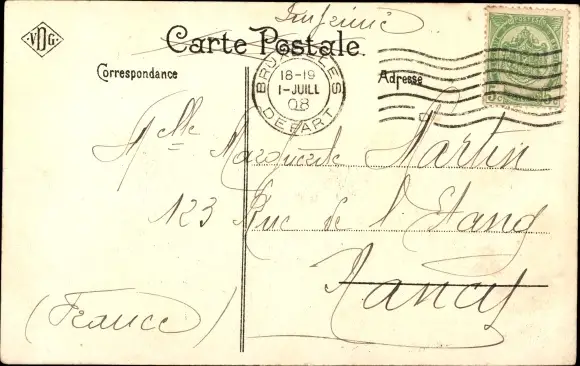 Imprimé
VDG.
Carte Postale.
Correspondance
Adresse
BRUXELLES
18-19
1-JUILL
08
DEPART
POSTES
5c 5c
Mlle Marguerite Martin
123 Rue de l'Etang
Nancy
(France)